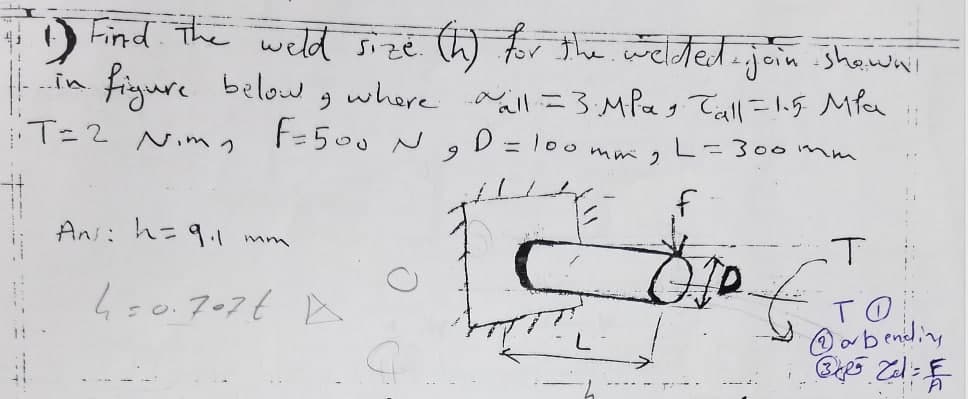 1) Find The weld size (h) for the welded join shown
in figure below, where σall = 3 MPa, τall = 1.5 MPa
T = 2 N.m, F = 500 N, D = 100 mm, L = 300 mm
F
Ans: h = 9.1 mm
T
D
h = 0.707 t
T ①
② σ bending
③ τd = F/A
L